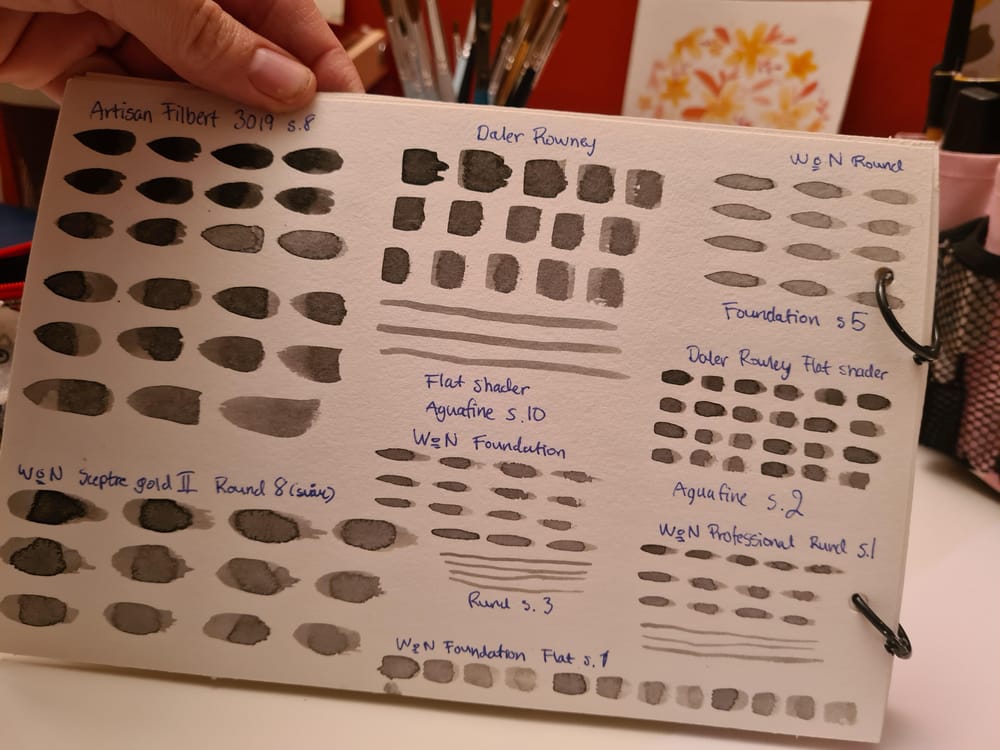 Artisan Filbert 3019 s.8
Daler Rowney
W&N Round
Foundation s5
Daler Rowney Flat shader
Flat shader
Aquafine s.10
W&N Foundation
W&N Sceptre gold II Round 8
Aquafine s.2
W&N Professional Rund s.1
Rund s. 3
W&N Foundation Flat s.1